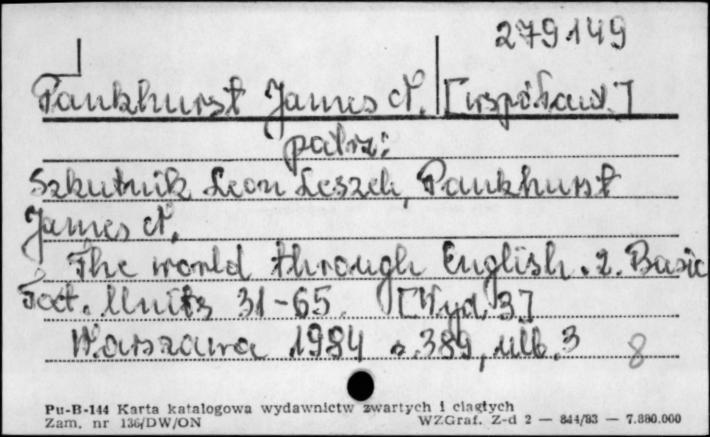 279.149
Pankhurst James N. [współaut.]
patrz:
Szkutnik Leon Leszek, Pankhurst
James N.
The world through English. 2. Basic
Text. Units 31-65. [Wyd. 3]
Warszawa 1984 s. 389, nlb. 3 8
Pu-B-144 Karta katalogowa wydawnictw zwartych i ciągłych
Zam. nr 136/DW/ON WZGraf. Z-d 2 — 844/83 — 7.880.000